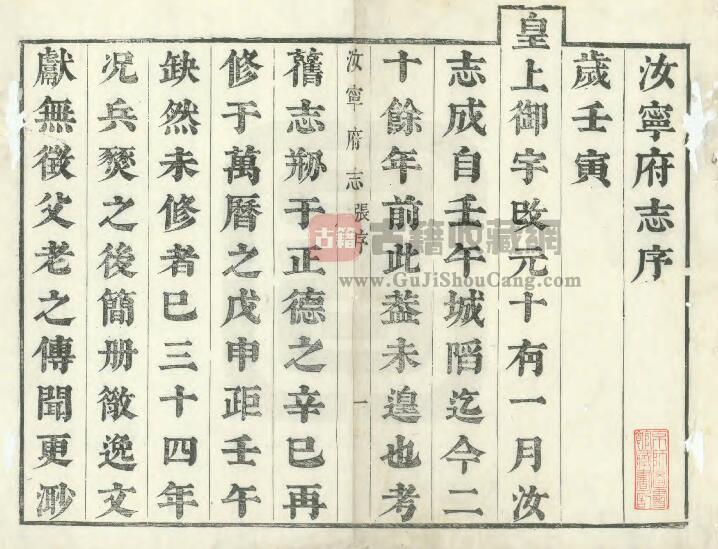 汝寧府志序
歲壬寅
皇上御宇改元十有一月汝
志成自壬午城䧟迄今二
十餘年前此葢未遑也考
汝寧府志 張序 一
舊志刱于正德之辛巳再
修于萬曆之戊申距壬午
缺然未修者已三十四年
况兵燹之後簡册散逸文
獻無徵父老之傳聞更渺
古籍 古籍收藏網
www.GuJiShouCang.com